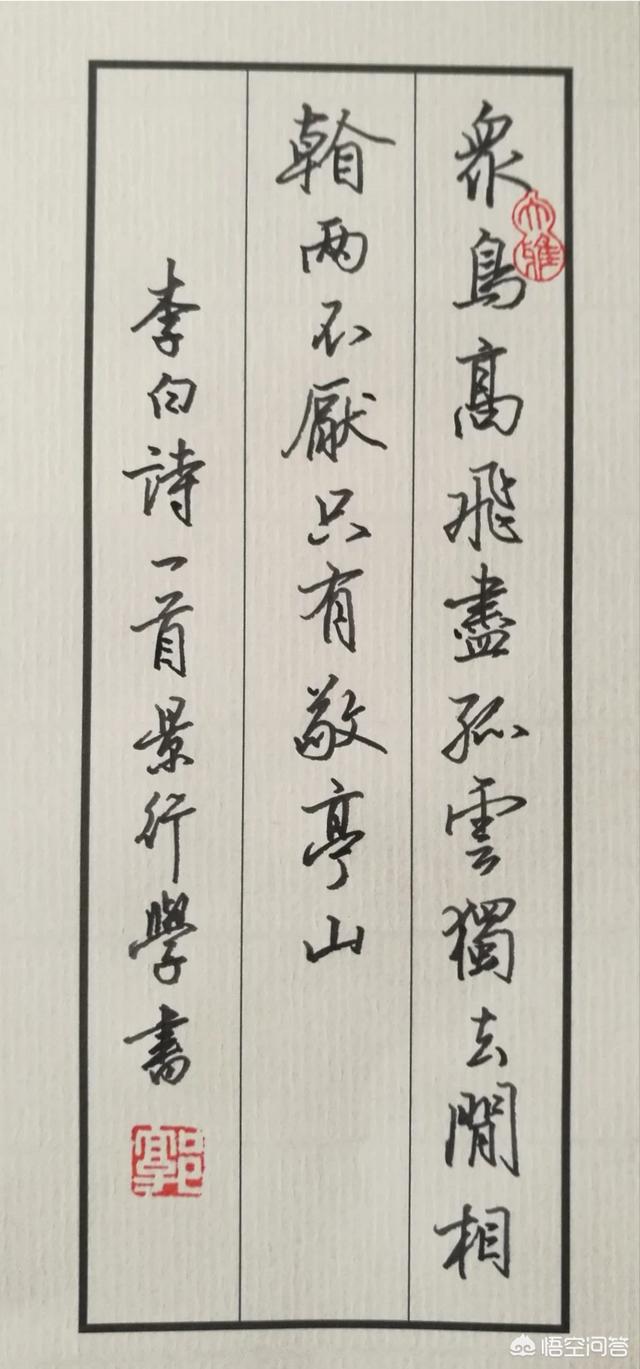 衆鳥髙飛盡孤雲獨去閒相
看两不厭只有敬亭山
李白詩一首景行學書
大雅
郭
悟空问答